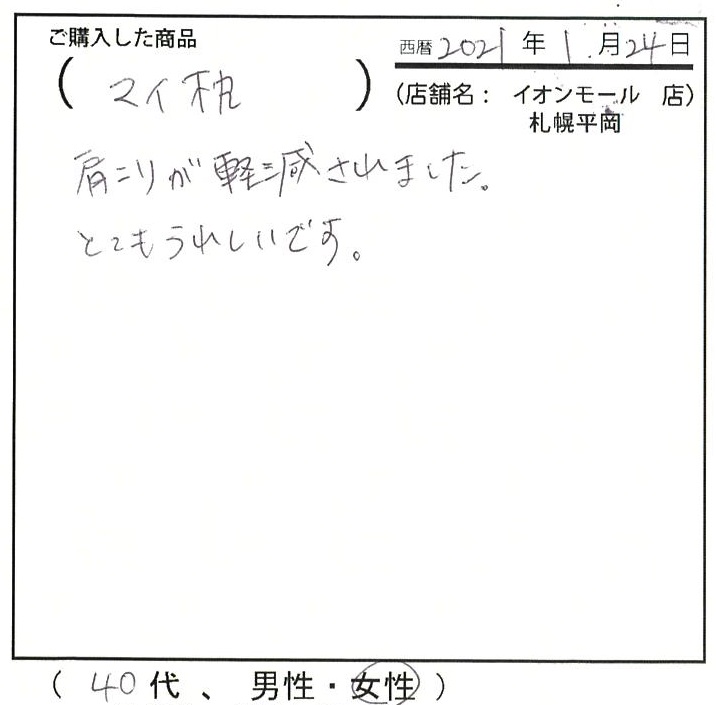 ご購入した商品
西暦 2021 年 1 月 24 日
( マイ枕 )
(店舗名： イオンモール 店)
札幌平岡
肩こりが軽減されました。
とてもうれしいです。
( 40 代 、 男性・女性 )